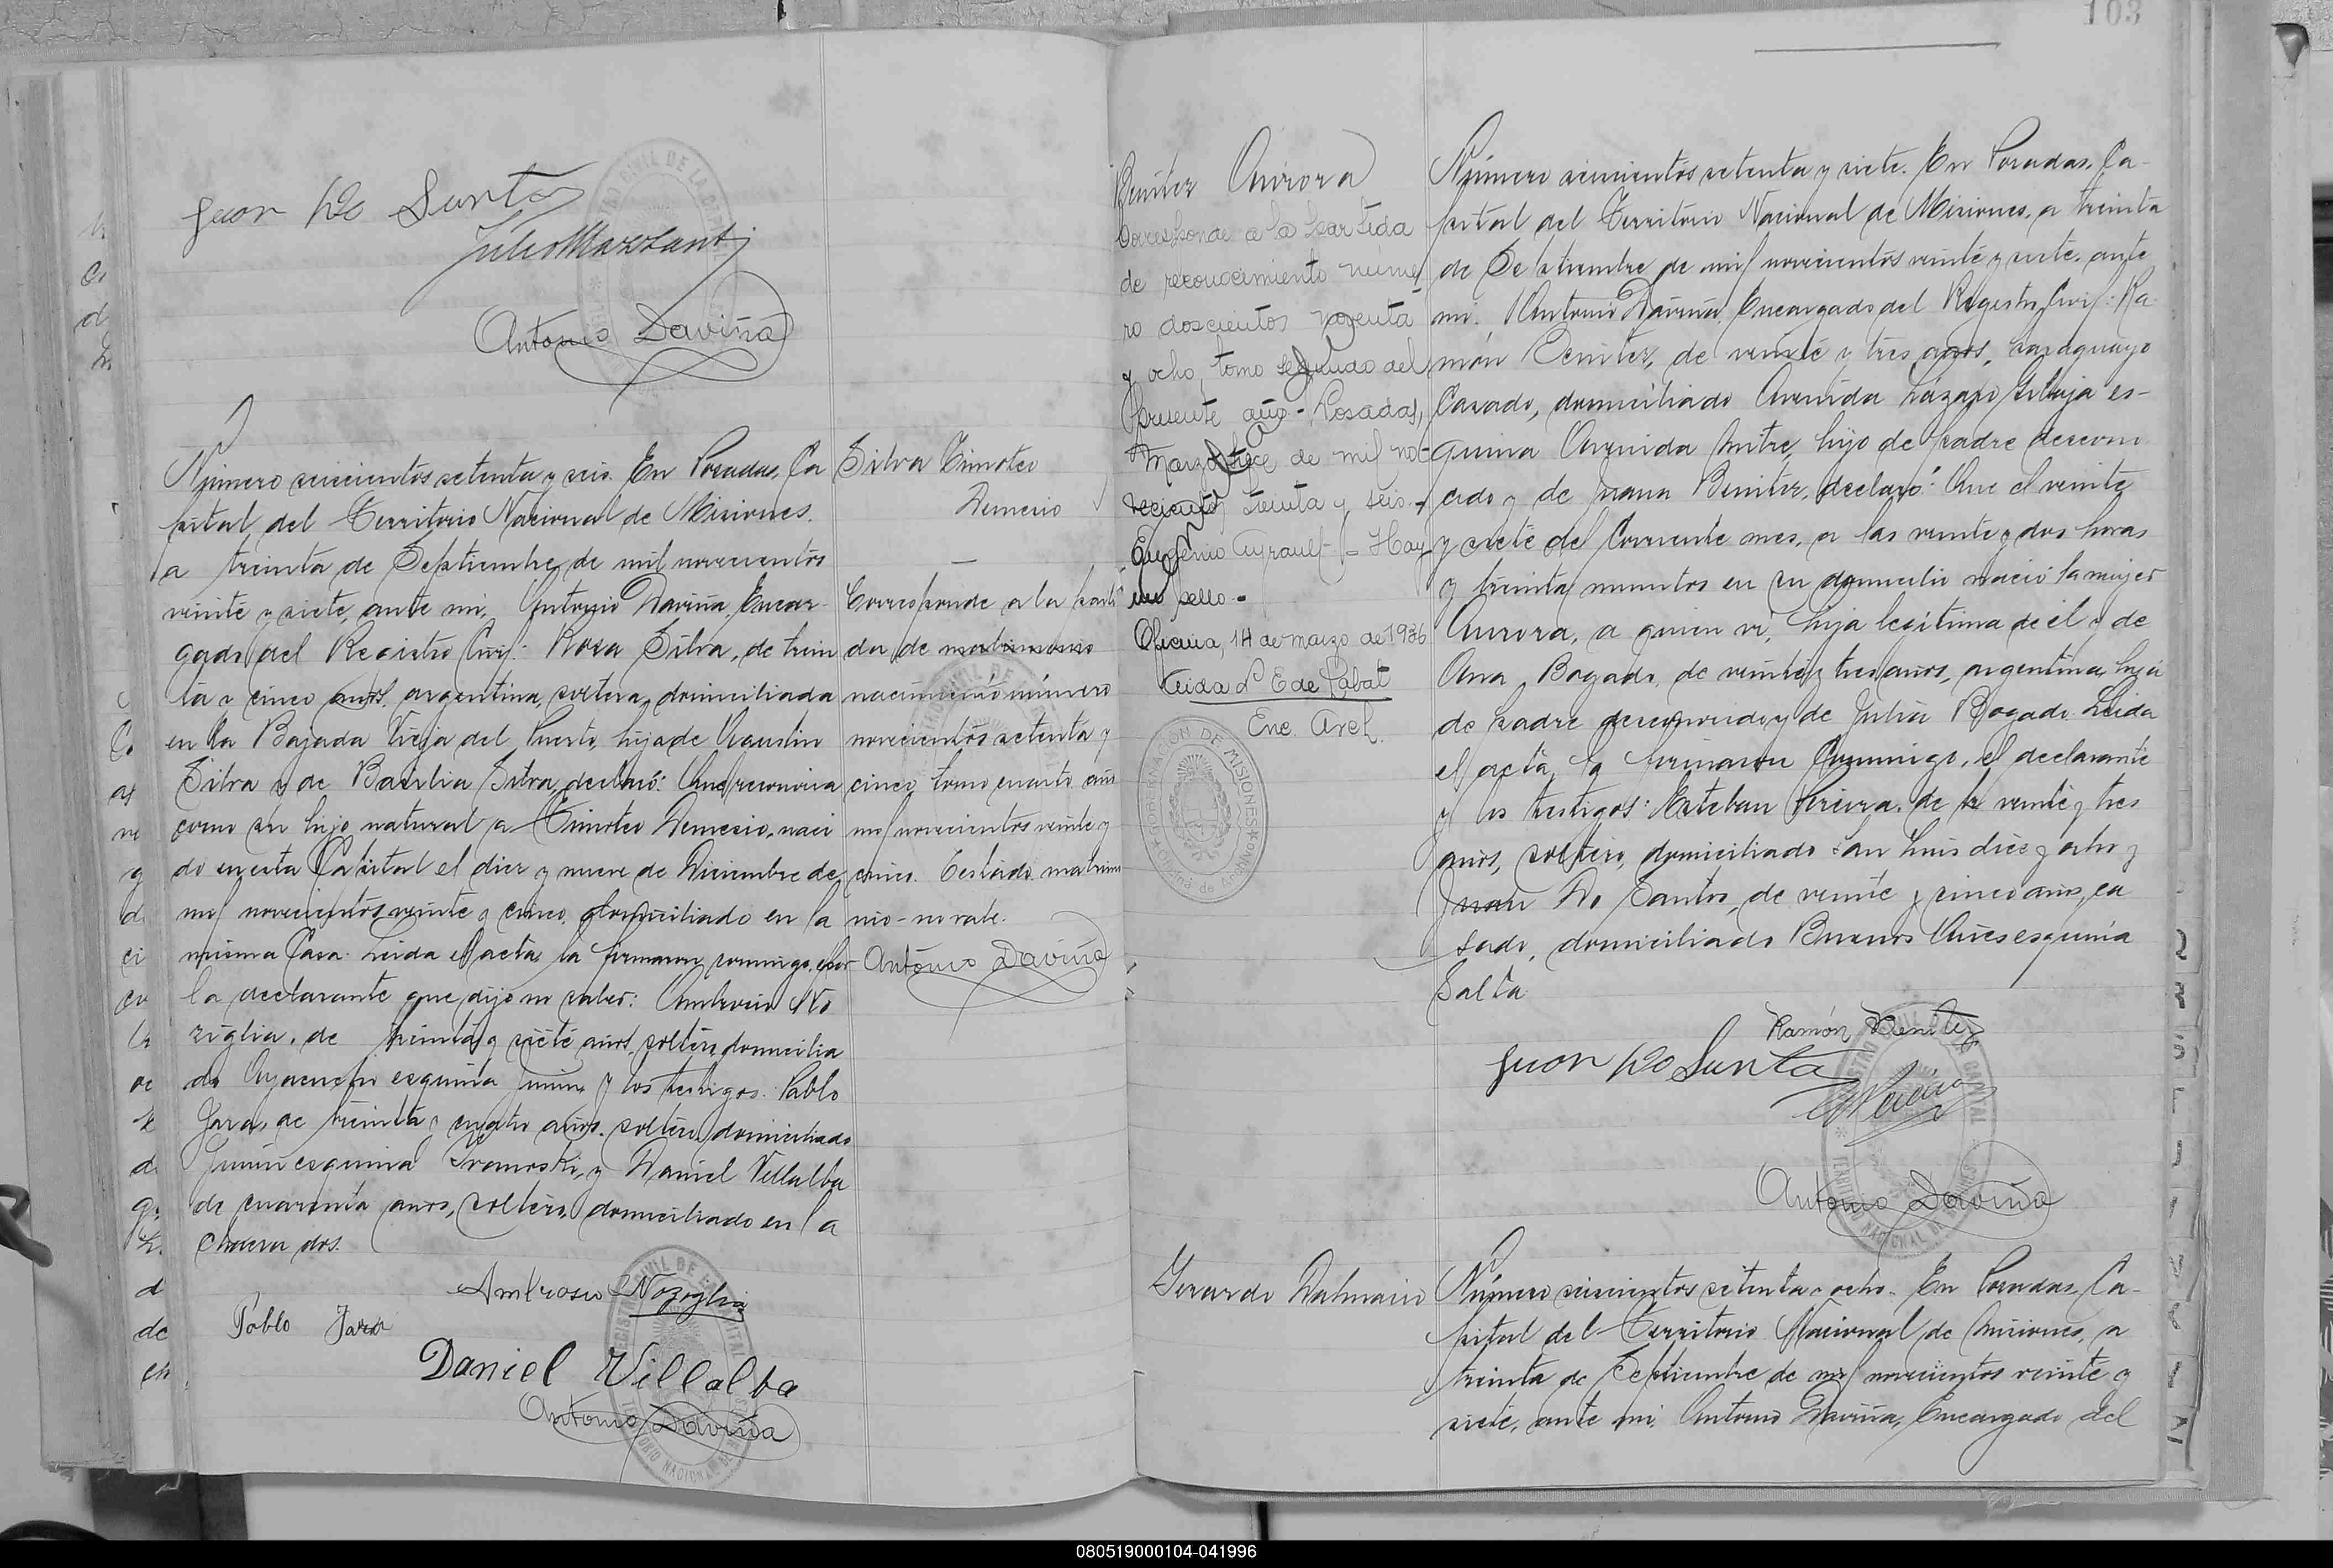 103
Juan Do Santo
Julio Mazzanti
Antonio Daviña
Número seiscientos setenta y seis. En Posadas, Ca
pital del Territorio Nacional de Misiones.
a treinta de Septiembre de mil novecientos
veinte y siete, ante mi, Antonio Daviña, Encar-
gado del Registro Civil: Rosa Silva, de trein
ta y cinco años, argentina, soltera, domiciliada
en la Bajada Vieja del Puerto, hija de Agustin
Silva y de Basilia Silva, declaró: Que reconocia
como su hijo natural a Timoteo Nemesio, naci
do en esta Capital el diez y nueve de Diciembre de
mil novecientos veinte y cinco, domiciliado en la
misma Casa. Leida el acta la firmaron conmigo, por
la declarante que dijo no saber: Ambrosio No
ziglia, de treinta y siete años, soltero, domicilia
do Ayacucho esquina Junin y los testigos: Pablo
Jara, de treinta y cuatro años, soltero, domiciliado
Junin esquina Ivanoski, y Daniel Villalba
de cuarenta años, soltero, domiciliado en la
Chacra dos.
Ambrosio Noziglia
Pablo Jara
Daniel Villalba
Antonio Daviña
Silva Timoteo
Nemesio
Corresponde a la parti
da de matrimonio
nacimiento número
novecientos setenta y
cinco tomo cuarto año
mil novecientos veinte y
cinco. Testado: matrimo
nio - no vale.
Antonio Daviña
Benitez Aurora
Corresponde a la partida
de reconocimiento núme
ro doscientos noventa
y ocho, tomo segundo del
presente año - Posadas,
Marzo trece de mil no-
vecientos treinta y seis -
Eugenio Ayrault - Hay
un sello -
Oficina, 14 de marzo de 1936
Enc. Arch.
GOBERNACIÓN DE MISIONES
Número seiscientos setenta y siete. En Posadas, Ca-
pital del Territorio Nacional de Misiones, a treinta
de Septiembre de mil novecientos veinte y siete, ante
mi. Antonio Daviña, Encargado del Registro Civil: Ra-
món Benitez, de veinte y tres años, paraguayo
Casado, domiciliado Avenida Lázaro Gibaja es-
quina Avenida Mitre, hijo de padre descono
cido y de Juana Benitez, declaró: Que el veinte
y siete del Corriente mes, a las veinte y dos horas
y treinta minutos en su domicilio nació la mujer
Aurora, a quien vi, hija legitima de él y de
Ana Bogado, de veinte y tres años, argentina, hija
de padre desconocido y de Julia Bogado. Leida
el acta, la firmaron Conmigo, el declarante
y los testigos: Esteban Pereira, de veinte y tres
años, soltero, domiciliado San Luis diez y ocho y
Juan Do Santos, de veinte y cinco años, ca
sado, domiciliado Buenos Aires esquina
Salta.
Ramón Benitez
Juan Do Santo
Antonio Daviña
Gerardo Dalmacio
Número seiscientos setenta y ocho. En Posadas, Ca-
pital del Territorio Nacional de Misiones, a
treinta de Septiembre de mil novecientos veinte y
siete, ante mi, Antonio Daviña, Encargado del
080519000104-041996